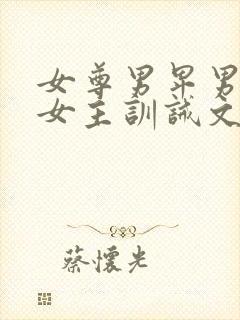 女尊男卑男
女主訓誡文
蔡懷光